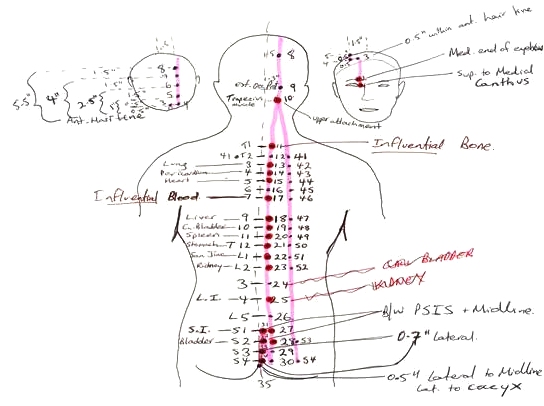 0.5" within ant. hair line
1.5"
Med. end of eyebrow
Sup. to Medial
Canthus
8
7
6
5
4
3
5.5"
4"
2.5"
Ant. Hair line
H5 8
ext. Occ. Pr. 9
Trapezius 10
muscle
upper attachment
T1 11 Influential Bone.
41 T2 12 41
Lung 3 13 42
Pericardium 4 14 43
Heart 5 15 44
6 16 45
Influential Blood 7 17 46
Liver 9 18 47
G. Bladder 10 19 48
Spleen 11 20 49
Stomach T 12 21 50
San Jiao L1 22 51
Kidney L2 23 52
3 24 GALL BLADDER
L.I. 4 25 KIDNEY
L5 26 B/W PSIS + Midline.
S.I. S1 27
Bladder S2 28 53 0.7" Lateral.
S3 29
S4 30 54
35 0.5" Lateral to Midline
Lat. to coccyx